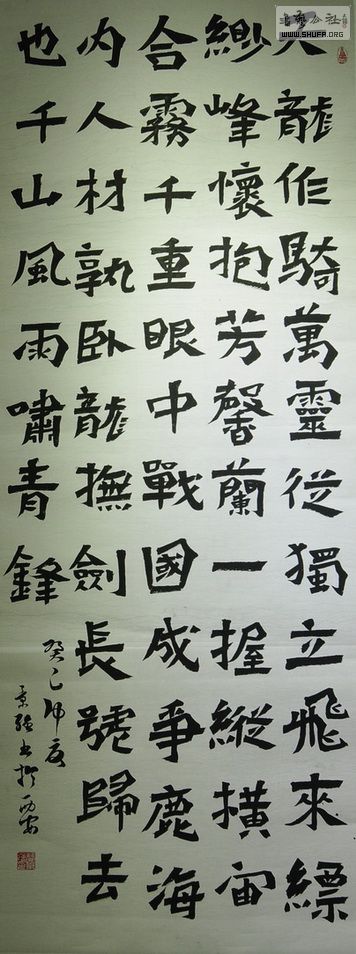 書藝公社
WWW.SHUFA.ORG
天龍作騎萬靈從獨立飛來縹
緲峰懷抱芳馨蘭一握縱橫宙
合霧千重眼中戰國成爭鹿海
内人材孰臥龍撫劍長號歸去
也千山風雨嘯青鋒
癸巳仲夏
書於西安